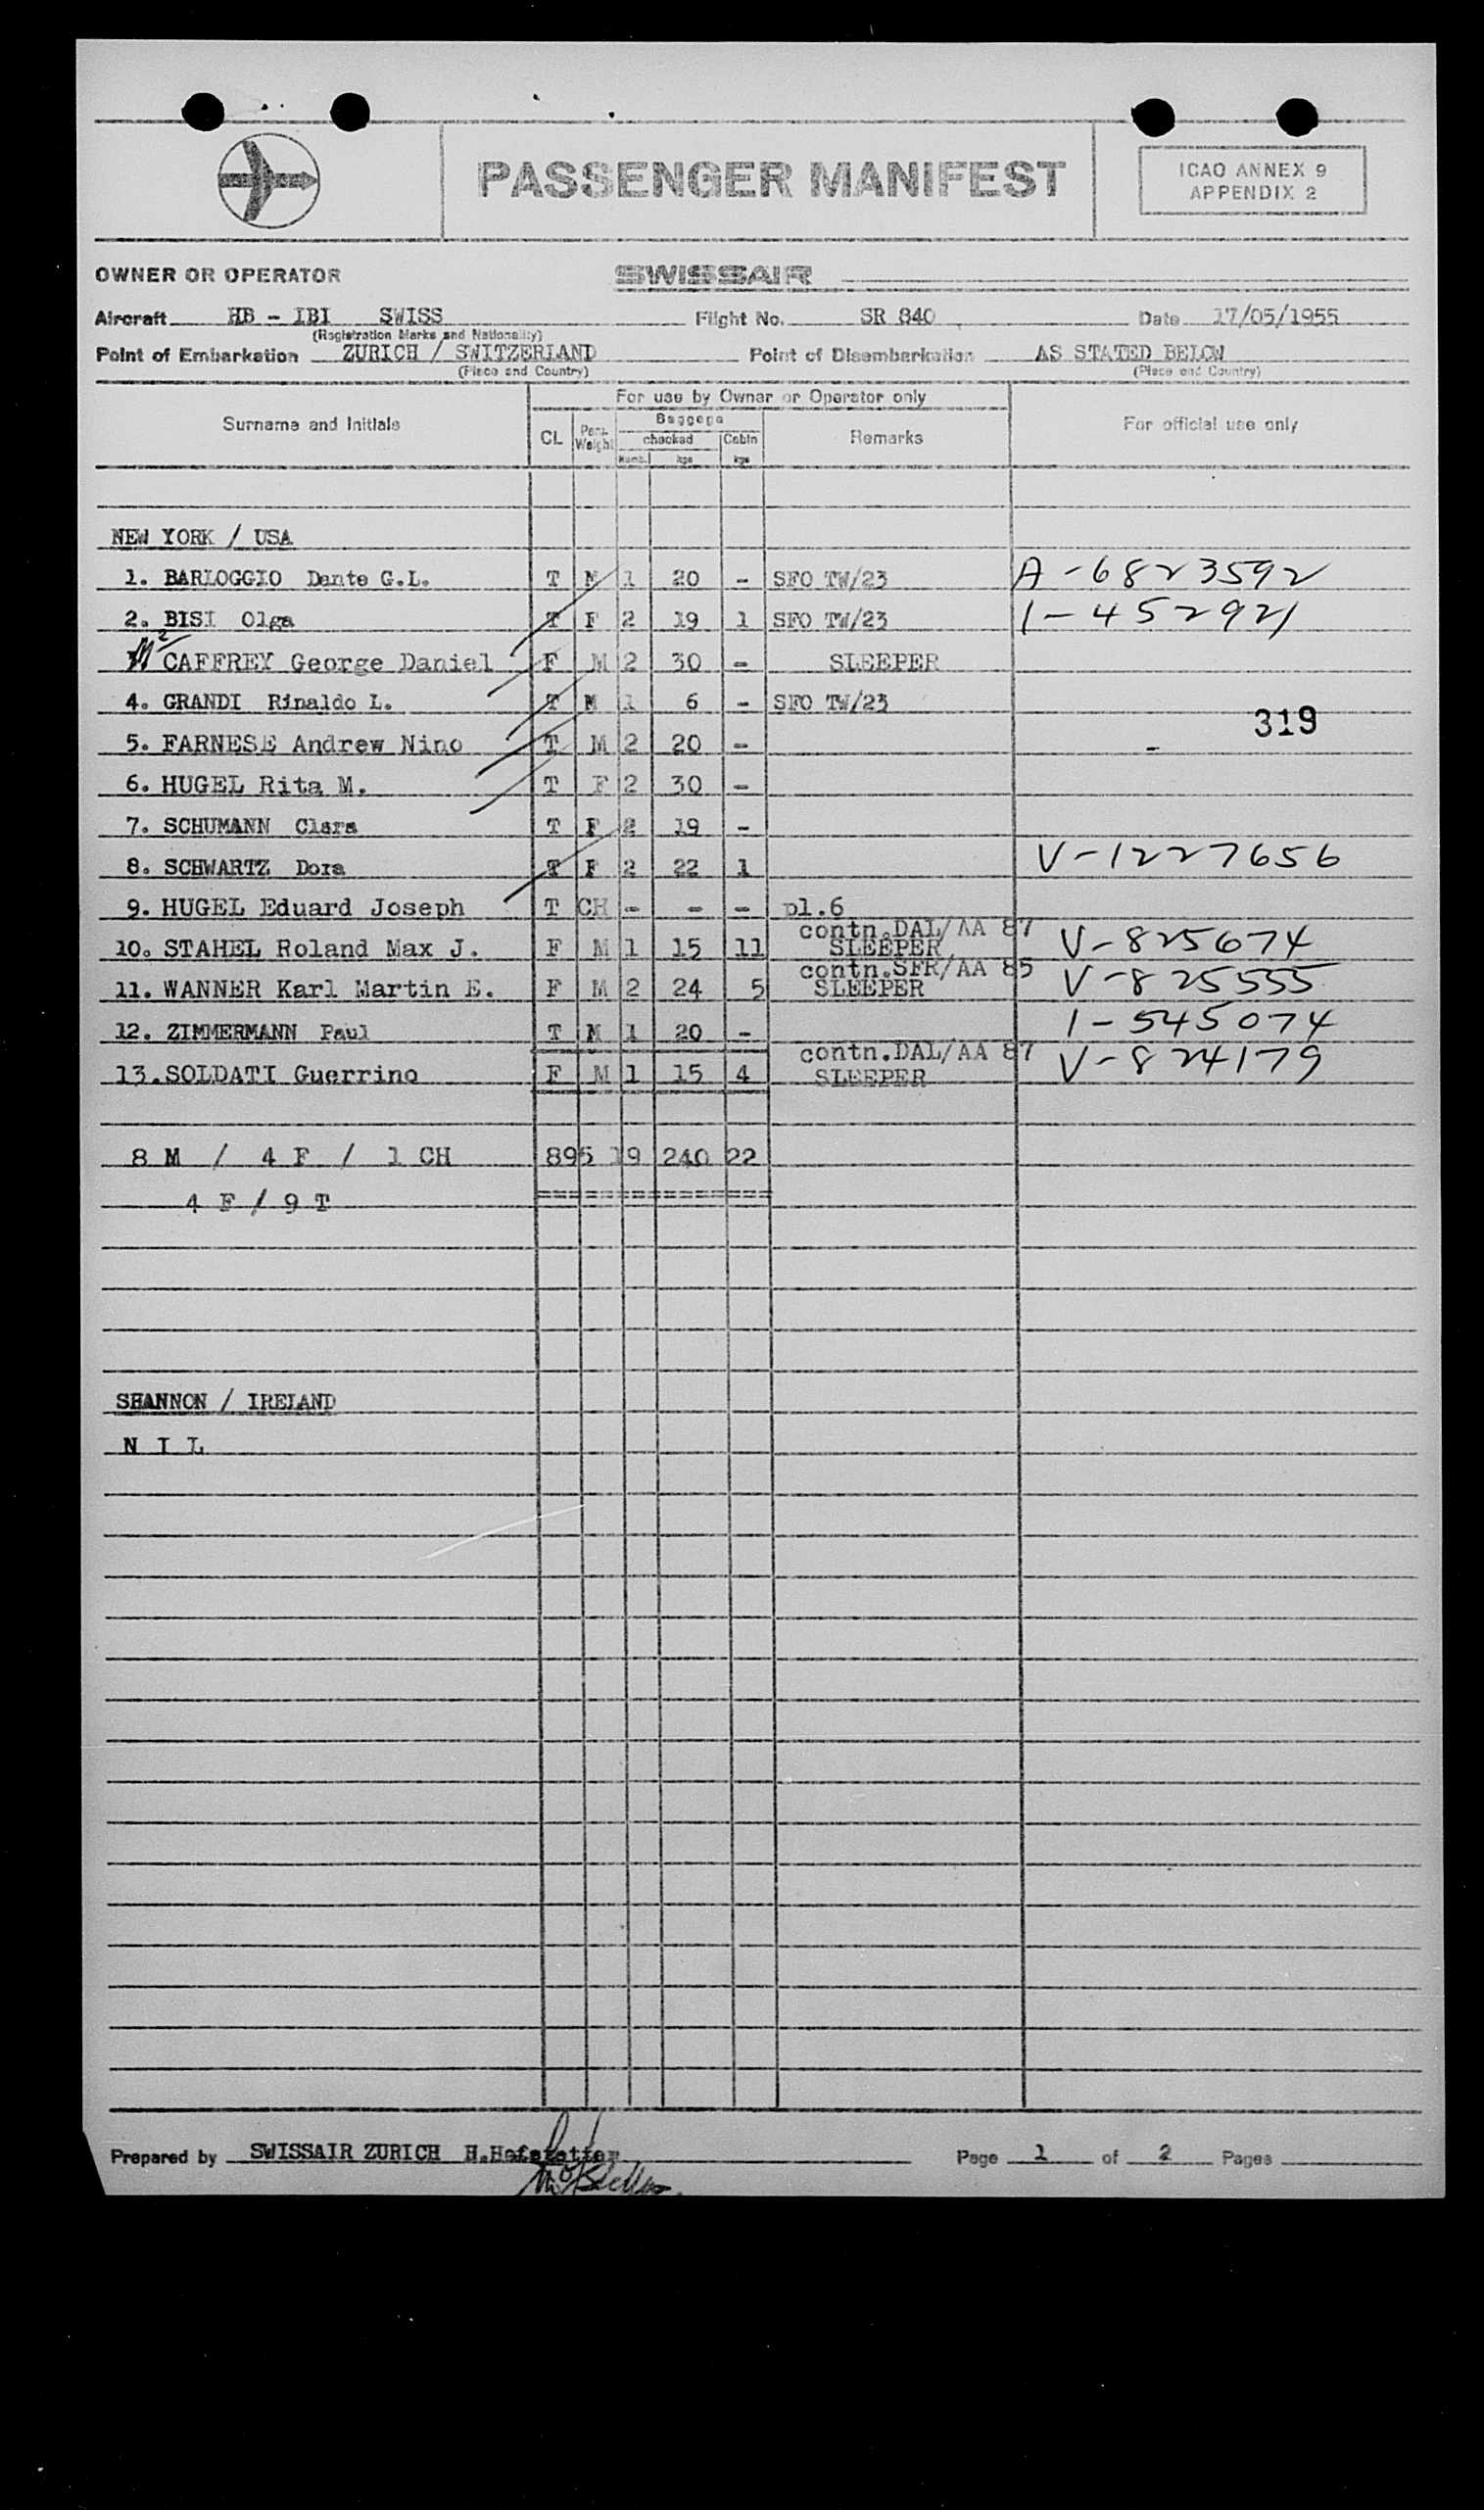 PASSENGER MANIFEST
ICAO ANNEX 9
APPENDIX 2
OWNER OR OPERATOR SWISSAIR
Aircraft HB - IBI SWISS Flight No. SR 840 Date 17/05/1955
(Registration Marks and Nationality)
Point of Embarkation ZURICH / SWITZERLAND Point of Disembarkation AS STATED BELOW
(Place and Country) (Place and Country)
Surname and Initials For use by Owner or Operator only For official use only
CL Pers. Weight Baggage checked Cabin Remarks
Numb. kgs kgs
NEW YORK / USA
1. BARLOGGIO Dante G.L. T M 1 20 - SFO TW/23 A-6823592
2. BISI Olga T F 2 19 1 SFO TW/23 1-452921
CAFFREY George Daniel F M 2 30 - SLEEPER
4. GRANDI Rinaldo L. T M 1 6 - SFO TW/23
319
5. FARNESE Andrew Nino T M 2 20 - -
6. HUGEL Rita M. T F 2 30 -
7. SCHUMANN Clara T F 2 19 -
8. SCHWARTZ Dora T F 2 22 1 V-1227656
9. HUGEL Eduard Joseph T CH - - - pl.6
contn.DAL/AA 87
10. STAHEL Roland Max J. F M 1 15 11 SLEEPER V-825674
contn.SFR/AA 85
11. WANNER Karl Martin E. F M 2 24 5 SLEEPER V-825555
12. ZIMMERMANN Paul T M 1 20 - 1-545074
contn.DAL/AA 87
13. SOLDATI Guerrino F M 1 15 4 SLEEPER V-824179
8 M / 4 F / 1 CH 895 19 240 22
4 F / 9 T ==================
SHANNON / IRELAND
N I L
Prepared by SWISSAIR ZURICH H.Hofstetter Page 1 of 2 Pages